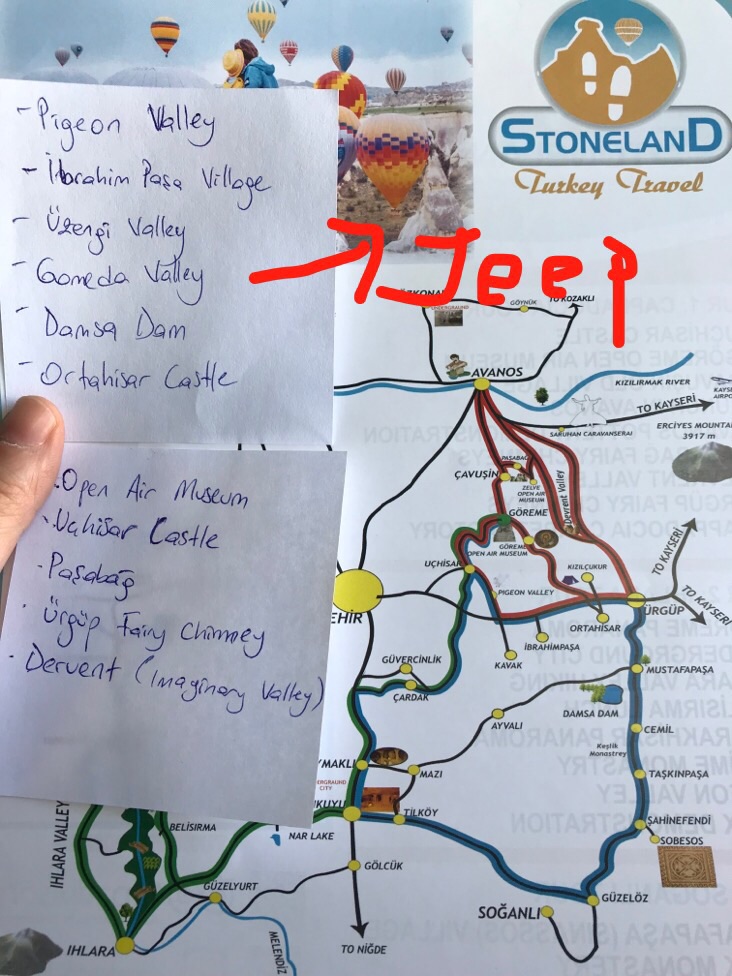 - Pigeon Valley
- İbrahim Paşa Village
- Üzengi Valley
- Gomeda Valley
- Damsa Dam
- Ortahisar Castle
Jeep
. Open Air Museum
. Uchisar Castle
. Paşabağ
. Ürgüp Fairy Chimney
. Dervent (Imaginary Valley)
STONELAND
Turkey Travel
GÖYNÜK
TO KOZAKLI
AVANOS
KIZILIRMAK RIVER
TO KAYSERİ
SARUHAN CARAVANSERAI
ERCIYES MOUNTA
3917 m
PAŞABAĞ
ÇAVUŞİN
ZELVE
OPEN AIR
MUSEUM
Devrent Valley
GÖREME
GÖREME
OPEN AIR MUSEUM
UÇHİSAR
KIZILÇUKUR
TO KAYSERİ
TO KAYSERİ
PIGEON VALLEY
ÜRGÜP
EHİR
ORTAHİSAR
İBRAHİMPAŞA
KAVAK
GÜVERCİNLİK
MUSTAFAPAŞA
ÇARDAK
DAMSA DAM
AYVALI
CEMİL
Keşlik
Monastrey
YMAKLI
MAZI
TAŞKINPAŞA
ERGRAUND
CITY
KUYU
TİLKÖY
ŞAHİNEFENDİ
SOBESOS
BELİSIRMA
NAR LAKE
IHLARA VALLEY
GÖLCÜK
GÜZELYURT
GÜZELÖZ
SOĞANLI
IHLARA
MELENDİZ
TO NİĞDE